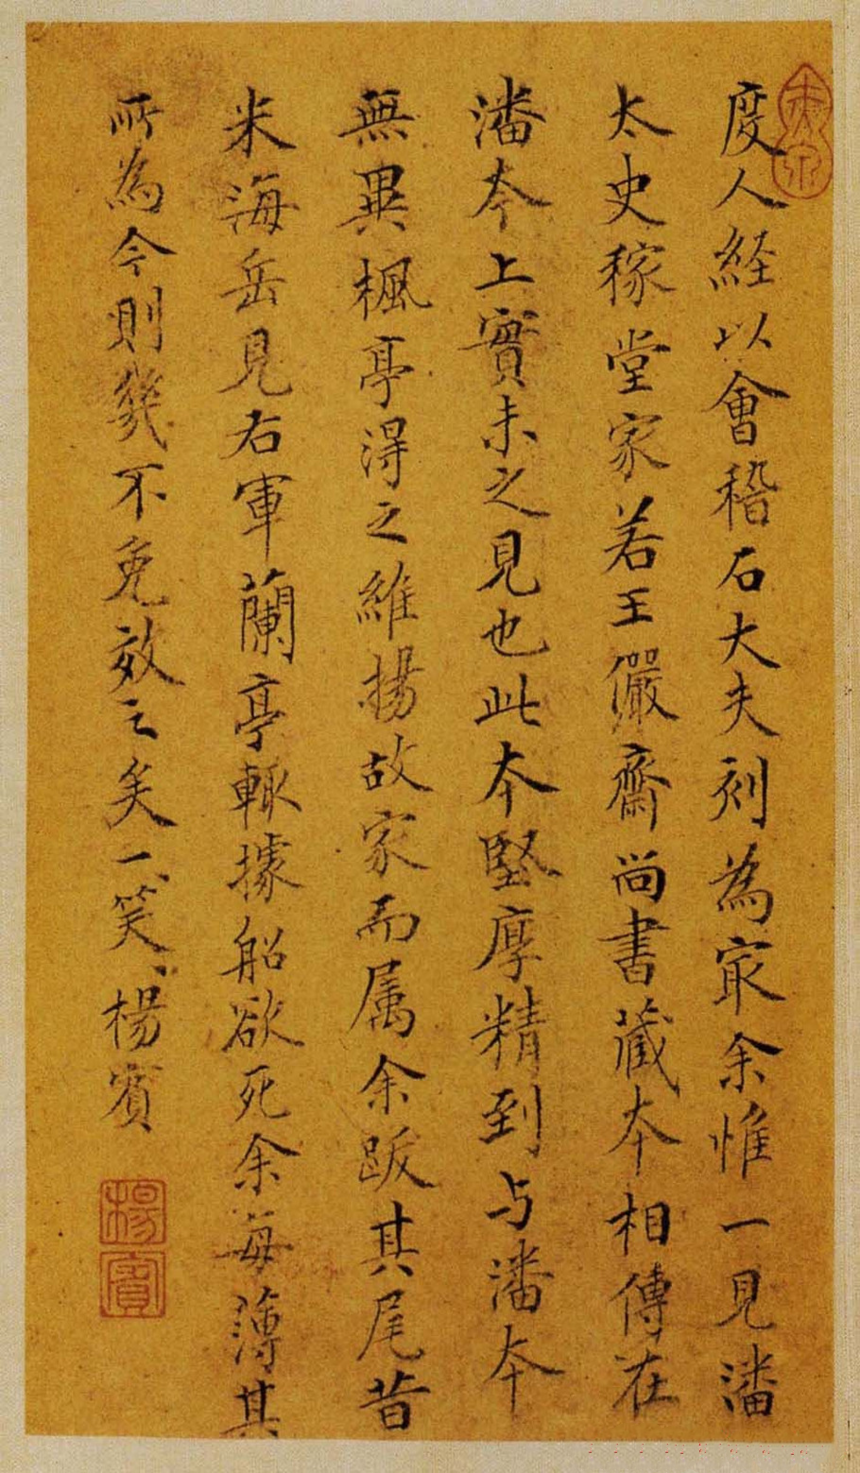 度人経以會稽石大夫刻為冣余惟一見潘
太史稼堂家若王儼齋尚書藏本相傳在
潘本上實未之見也此本堅厚精到与潘本
無異楓亭得之維揚故家而属余跋其尾昔
米海岳見右軍蘭亭輙據船欲死余每薄其
所為今則幾不免效之矣一笑楊賓
楊賓